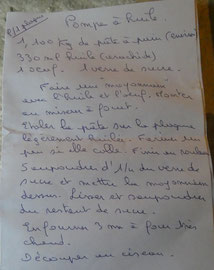 P/1 plaque
Pompe à huile.
1,100 Kg de pâte à pain (environ)
330 ml huile (arachide)
1 oeuf. 1 verre de sucre.
Faire une mayonnaise
avec l'huile et l'oeuf. Monter
au mixeur à fouet.
Etaler la pâte sur la plaque
légèrement huilée. Fariner un
peu si elle colle. Finir au rouleau
Saupoudrer d'1/2 du verre de
sucre et mettre la mayonnaise
dessus. Lisser et saupoudrer
du restant de sucre.
Enfourner 3 mn à four très
chaud.
Découper au ciseau.